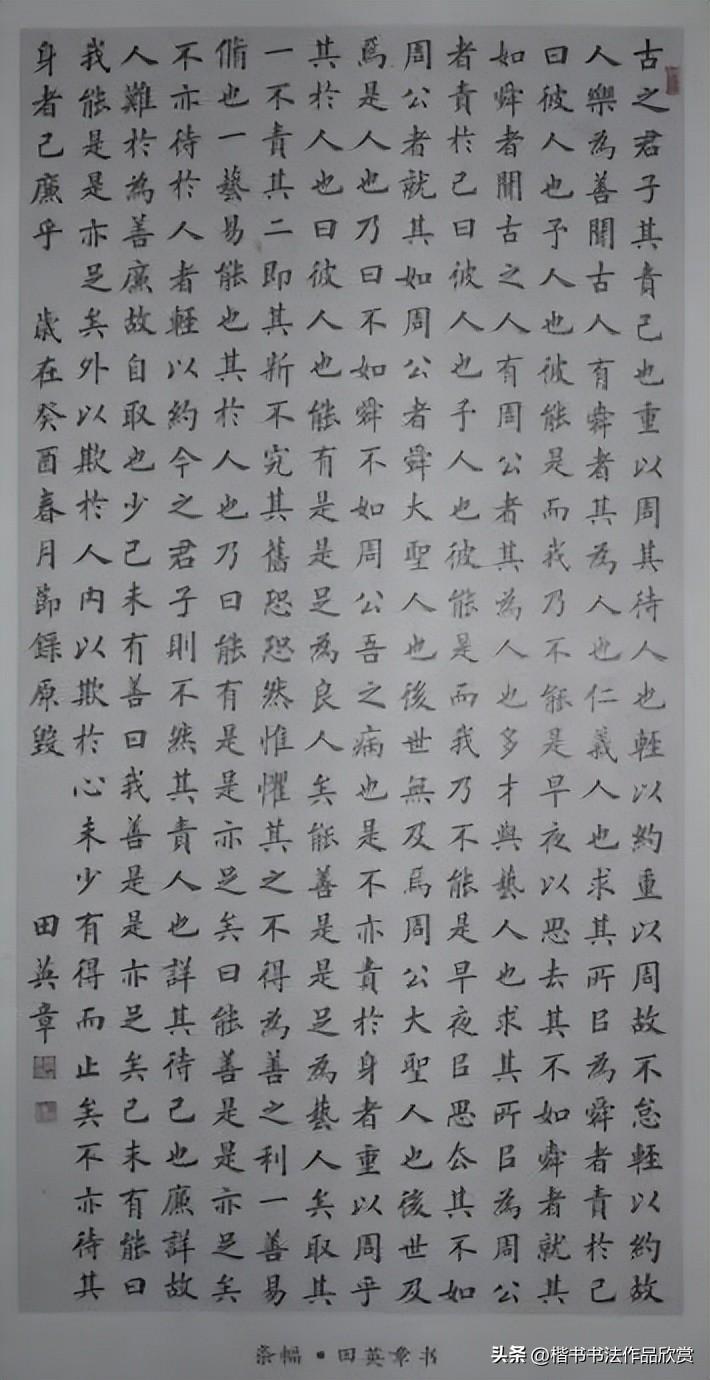 古之君子其責己也重以周其待人也輕以約重以周故不怠輕以約故
人樂為善聞古人有舜者其為人也仁義人也求其所㠯為舜者責於己
曰彼人也予人也彼能是而我乃不能是早夜以思去其不如舜者就其
如舜者聞古之人有周公者其為人也多才與藝人也求其所㠯為周公
者責於己曰彼人也予人也彼能是而我乃不能是早夜㠯思去其不如
周公者就其如周公者舜大聖人也後世無及焉周公大聖人也後世及
焉是人也乃曰不如舜不如周公吾之病也是不亦責於身者重以周乎
其於人也曰彼人也能有是是足為良人矣能善是是足為藝人矣取其
一不責其二即其新不究其舊恐恐然惟懼其之不得為善之利一善易
脩也一藝易能也其於人也乃曰能有是是亦足矣曰能善是是亦足矣
不亦待於人者輕以約今之君子則不然其責人也詳其待己也廉詳故
人難於為善廉故自取也少己未有善曰我善是是亦足矣己未有能曰
我能是是亦足矣外以欺於人內以欺於心未少有得而止矣不亦待其
身者己廉乎 歲在癸酉春月節錄原毀 田英章
条幅•田英章书
头条 @楷书书法作品欣赏